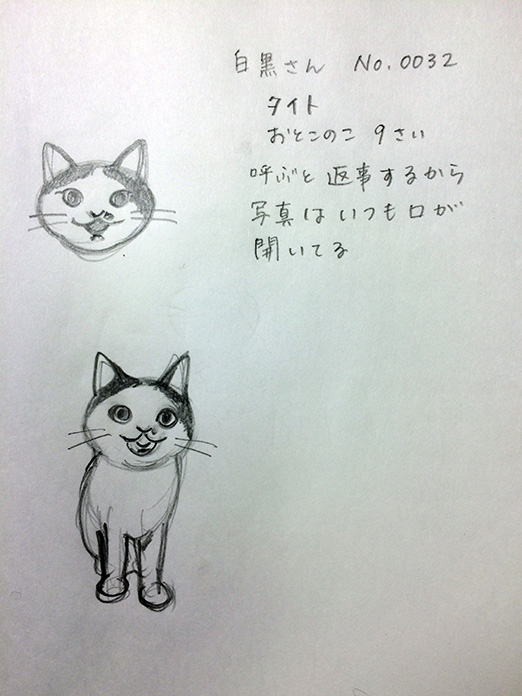 白黒さん No.0032
タイト
おとこのこ 9さい
呼ぶと返事するから
写真はいつも口が
開いてる